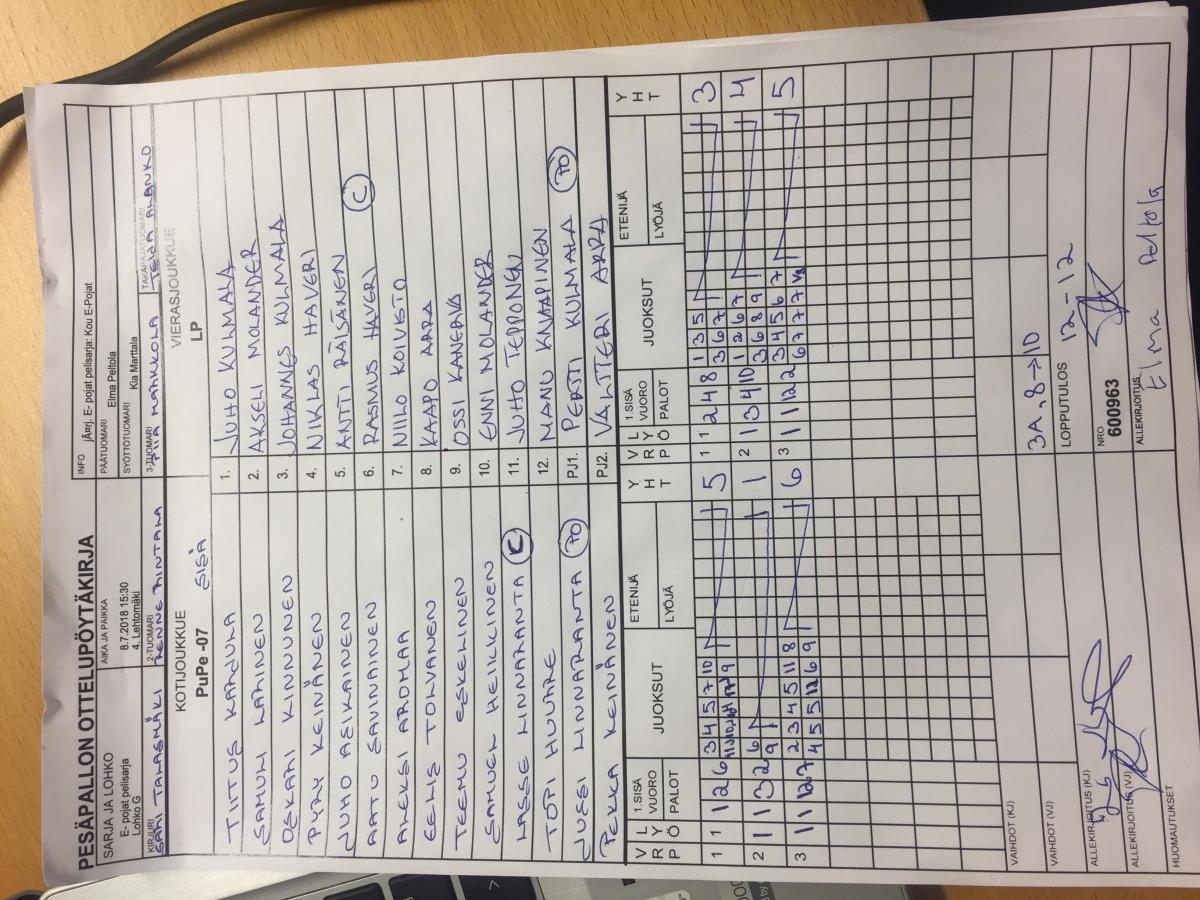 PESÄPALLON OTTELUPÖYTÄKIRJA
SARJA JA LOHKO
E- pojat pelisarja
Lohko G
AIKA JA PAIKKA
8.7.2018 15:30
4. Lehtomäki
INFO jÃ¤rj. E- pojat pelisarja: Kou E-Pojat
PÄÄTUOMARI Elma Peltola
SYÖTTÖTUOMARI Kia Marttala
KIRJURI
SARI TALASMÄKI
2-TUOMARI
3-TUOMARI
TAKARAJATUOMARI
KOTIJOUKKUE
PuPe -07 SISÄ
VIERASJOUKKUE
LP
TIITUS KARJULA 1. JUHO KULMALA
SAMULI LAMINEN 2. AKSELI MOLANDER
OSKARI KINNUNEN 3. JOHANNES KULMALA
PYRY KEINÄNEN 4. NIKLAS HAVERI
JUHO ASIKAINEN 5. ANTTI RÄISÄNEN
AATU SAVINAINEN 6. RASMUS HAVERI C
AKEKSI AROMAA 7. NIILO KOIVISTO
EELIS TOLVANEN 8. KAAPO ARRA
TEEMU ESKELINEN 9. OSSI KANERVA
SAMUEL HEIKKINEN 10. ENNI MOLANDER
LASSE LINNARANTA C 11. JUHO TEPPONEN
TOPI HUUARE 12. MANU KNAAPINEN
JUSSI LINNARANTA PO PJ1. PERTTI KULMALA PO
PEKKA KEINÄNEN PJ2. VALTTERI ARRA
V R P L Y Ö 1.SISÄ VUORO PALOT JUOKSUT ETENIJÄ LYÖJÄ Y H T
V R P L Y Ö 1.SISÄ VUORO PALOT JUOKSUT ETENIJÄ LYÖJÄ Y H T
1 1 1 2 6 3 4 5 7 10 5 1 1 2 4 8 1 3 5 3
9 3 6 7
2 1 1 3 2 6 1 2 1 3 4 10 1 2 6 7 4
9 3 6 8 9
3 1 1 12 7 2 3 4 5 11 8 6 3 1 1 12 2 3 4 5 6 7 5
4 5 5 12 6 9 6 7 7 7
VAIHDOT (KJ)
VAIHDOT (VJ) 3A, 8→10
ALLEKIRJOITUS (KJ)
LOPPUTULOS 12-12
ALLEKIRJOITUS (VJ)
NRO
600963
HUOMAUTUKSET
ALLEKIRJOITUS
Elma Peltola